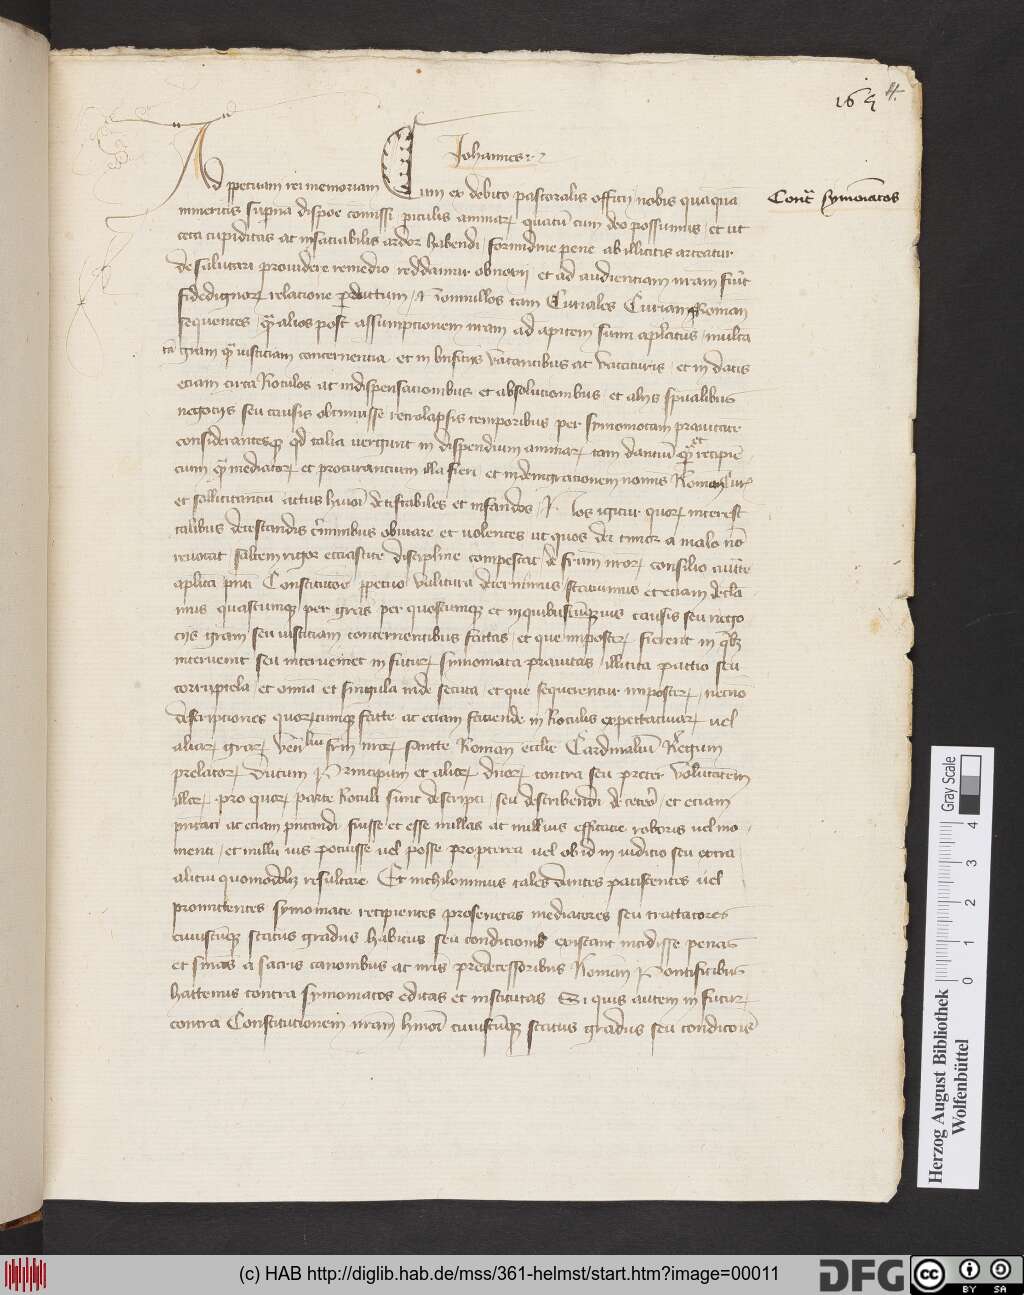 165 4.
Johannes
Ad ppetuam rei memoriam Cum ex debito pastoralis officij nobis quāquā
Contᵃ symoiacos
inmeritis supna dispoe cōmissi piculis animaꝝ quātū cum deo possumus et ut
ceca cupiditas ac insaciabilis ardor habendi formidine pene ab illicitis arceatur
de salutari prouidere remedio reddamur obnoxij et ad audienciam nr̄am fiūt
fidedignoꝝ relacione perductum Nonnullos tam Curiales Curiam Romanā
sequentes qᵃ alios post assumptionem nr̄am ad apicem sumi apl̄atus multa
grām qᵃ iusticiam concernencia et in bn̄ficijs vacantibus ac vacaturis et in dācis
eciam circa Rotulos ac in dispensacionibus et absolucionibus et alijs spūalibus
negocijs seu causis obtinuisse retrolapsis temporibus per symoniacam prauitate
considerantesqꝫ qd talia vergunt in dispendium animaꝝ tam danciū qᵃ et recipiē
cium qᵃ mediatoꝝ et procurancium illa fieri et in denigracionem nominis Romane Cur
et sollicitanciū actus hmoi detestabiles et infandos Nos igitur quoꝝ interest
talibus detestandis criminibus obuiare et volentes ut quos dei timor a malo nō
reuocat saltem rigor ecciastice discipline compescat de frūm nr̄oꝝ consilio auctte
aplica pn̄ti Constitucōe ppetuo valitura decernimus statuimus et eciam decla
mus quascumqꝫ per grās per quoscumqꝫ et in quibuscūqꝫ causis seu nego
cijs grām seu iusticiam concernentibus factas et que imposteꝝ fierent in qᵇꝫ
interuenit seu interueniet in futuꝝ symoniaca prauitas illicita pactio seu
corruptela et om̄ia et singula inde secuta et que sequerentur imposteꝝ necnō
descripciones quoꝝcumqꝫ factte ac eciam faciende in Rotulis expectatiuaꝝ vel
aliaꝝ graꝝ ven̄liu frm̄ nr̄oꝝ sancte Romane eccl̄ie Cardinaliū Regum
prelatoꝝ Ducum Principum et alioꝝ dn̄oꝝ contra seu preter Volūtatem
illoꝝ pro quoꝝ parte Rotuli sunt descripti seu describendi de cetero et eciam
pn̄tati ac eciam pn̄tandi fuisse et esse nullas ac nullius efficacie roboris vel mo
menti et nulli ius potuisse vel posse propterea vel ob id in iudicio seu extra
alicui quomodolꝫ resultare Et nichilominus tales Dantes paciscentes vel
promittentes symoniace recipientes proseneticas mediatores seu tractatores
cuiuscūqꝫ status gradus habitus seu condicionis existant incidisse penas
et sn̄ias a sacris canonibus ac nr̄is predecessoribus Romanis Pontificibus
hactenus contra symoniacos editas et institutas Si quis autem in futuꝝ
contra Constitutionem nr̄am hmoi cuiuscūqꝫ status gradus seu condicōis
Gray Scale
0 1 2 3 4
Herzog August Bibliothek
Wolfenbüttel
(c) HAB http://diglib.hab.de/mss/361-helmst/start.htm?image=00011
DFG
cc BY SA